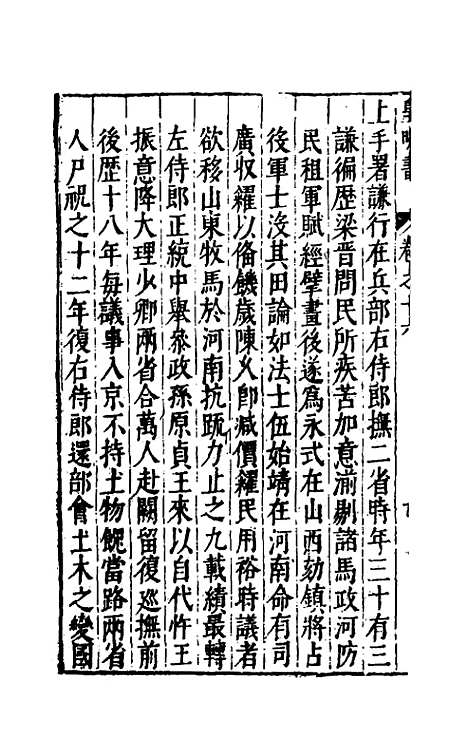 上手署謙行在兵部右侍郎撫二省時年三十有三
謙徧歷梁晉問民所疾苦加意湔剔諸馬政河防
民租軍賦經擘畫後遂爲永式在山西劾鎮將占
後軍士沒其田論如法士伍始靖在河南命有司
廣収糴以俻饑歲陳乂卽減價糶民用裕時議者
欲移山東牧馬於河南抗疏力止之九載績最轉
左侍郎正統中舉叅政孫原貞王來以自代忤王
振意降大理少卿兩省合萬人赴闕留復巡撫前
後歷十八年每議事入京不持土物餽當路兩省
人尸祝之十二年復右侍郎還部會土木之變國